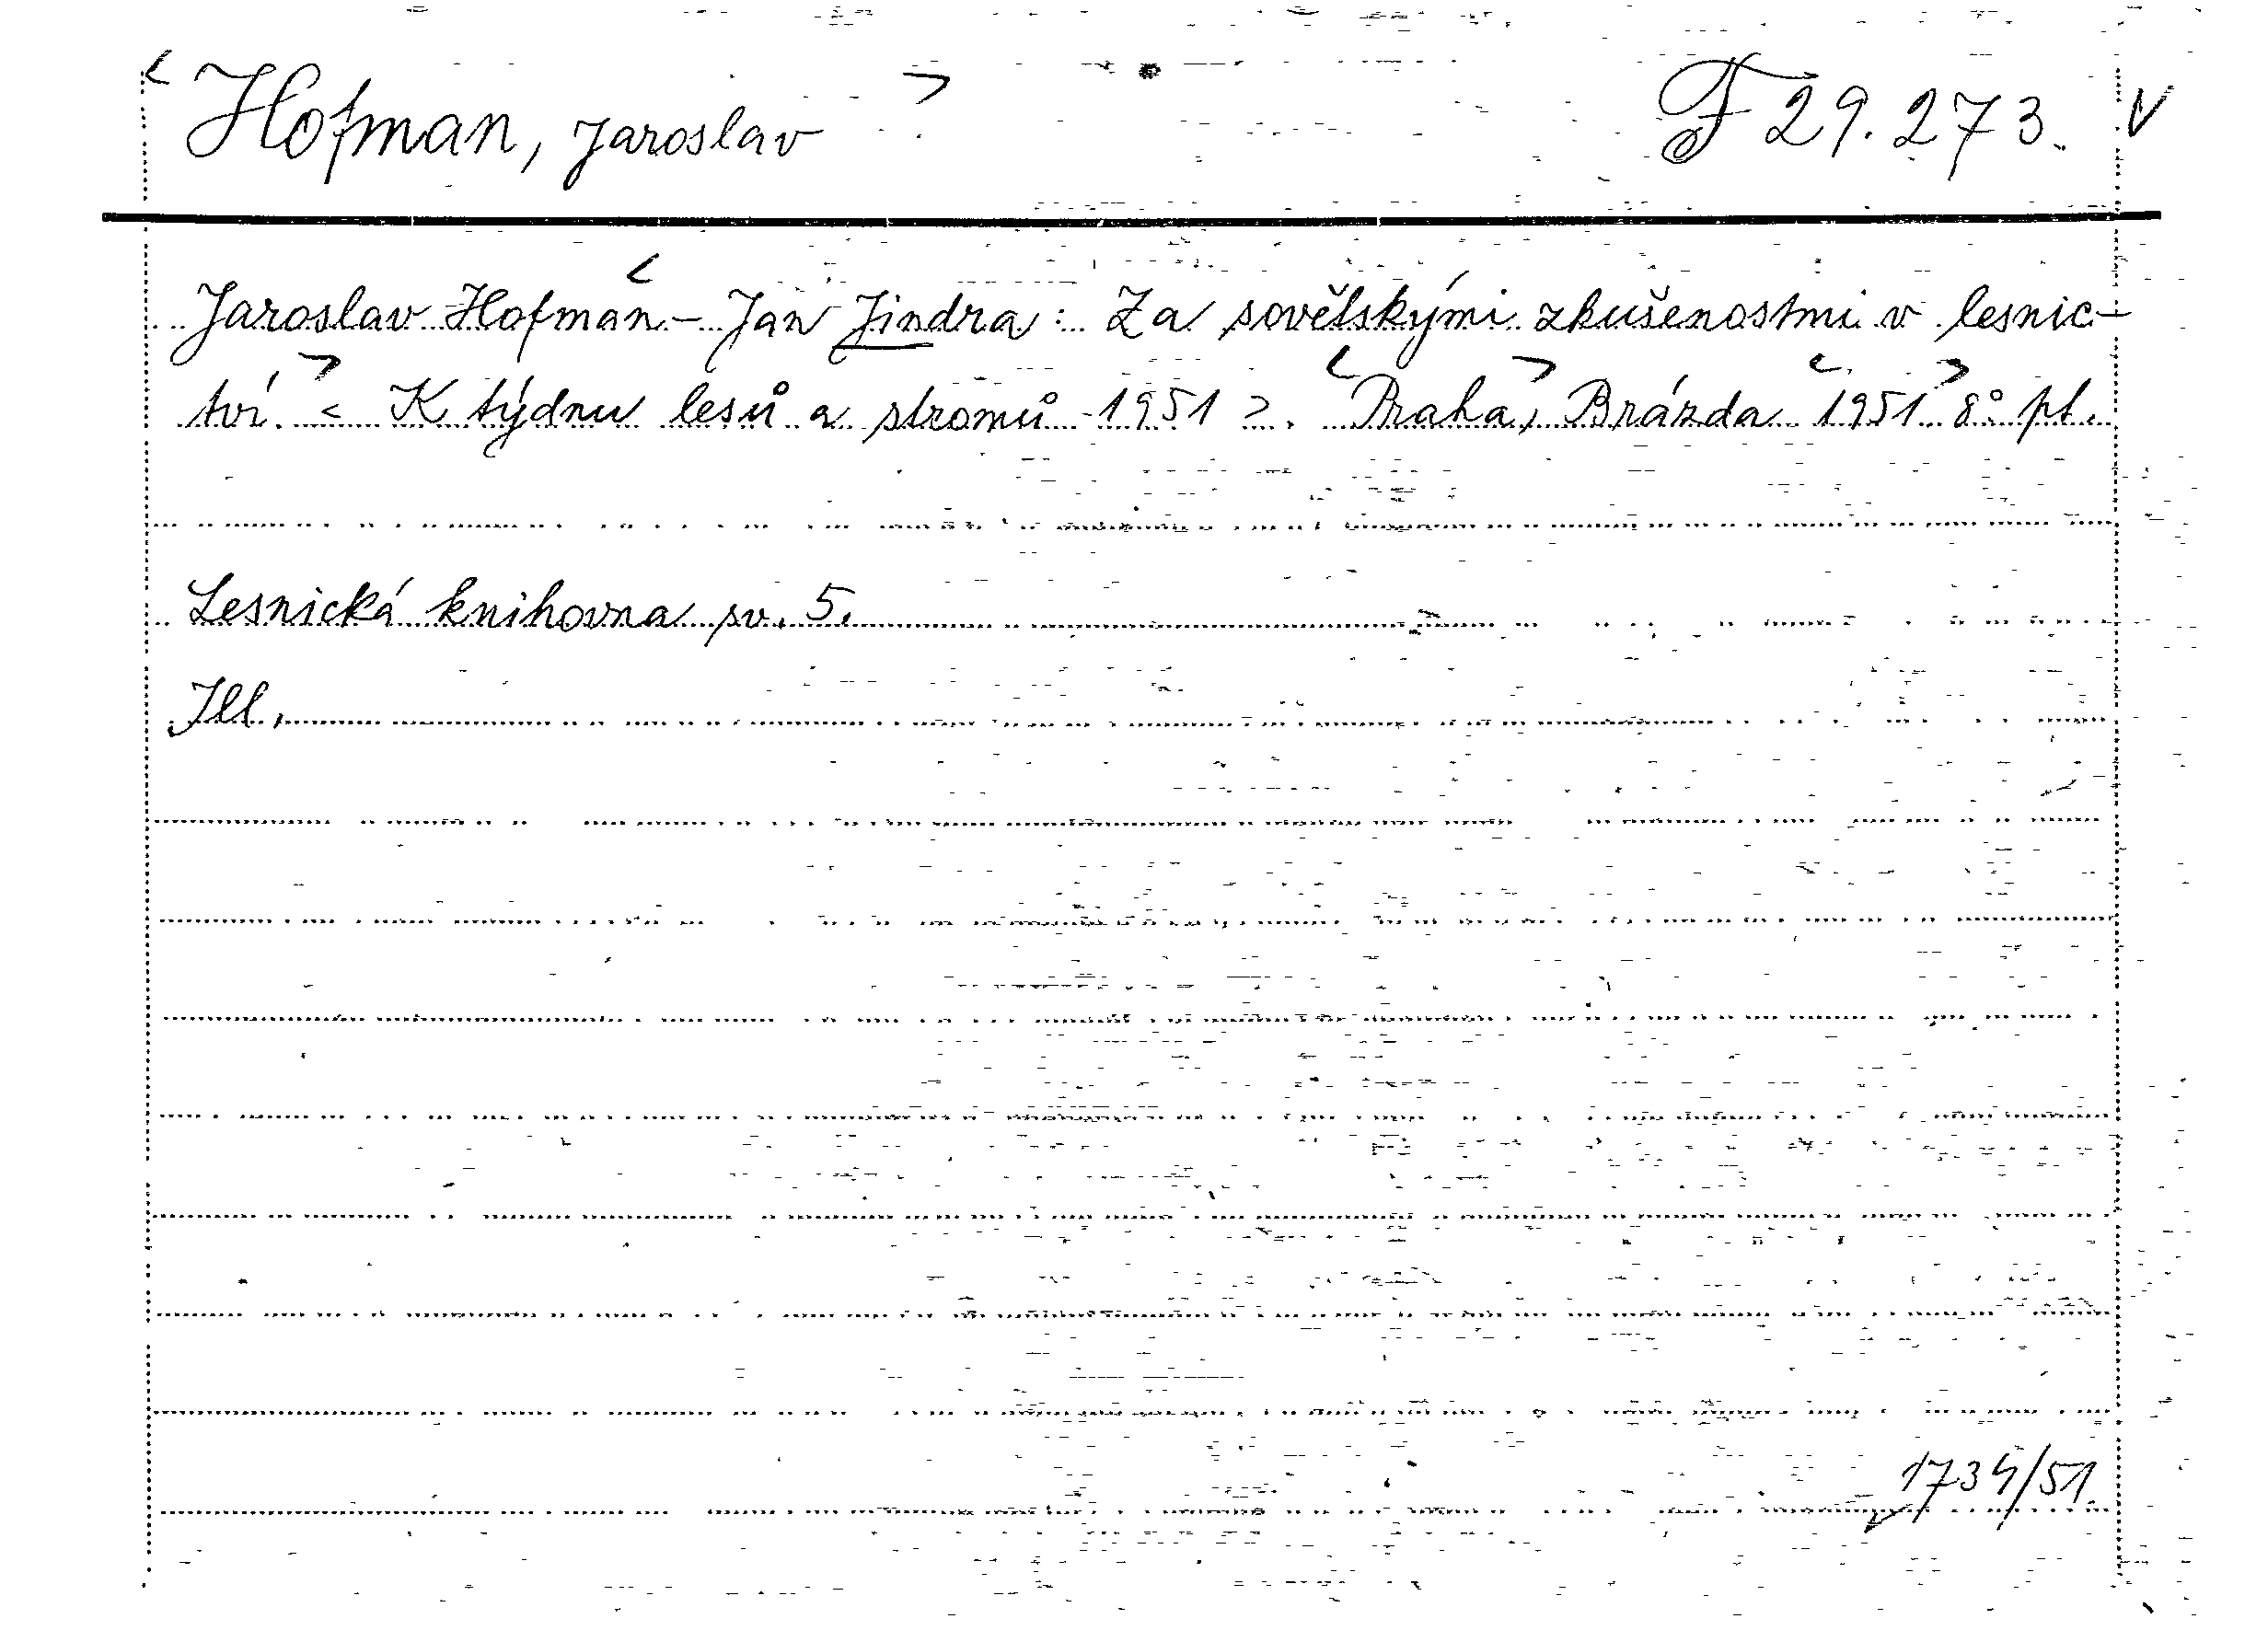 < Hofman, Jaroslav > F 29.273. V
Jaroslav Hofman - < Jan Jindra: Za sovětskými zkušenostmi v lesnic-
tví. > < K týdnu lesů a stromů 1951 >. < Praha, > Brázda < 1951 > 8° pt.
Lesnická knihovna sv. 5.
Ill.
1734/51.